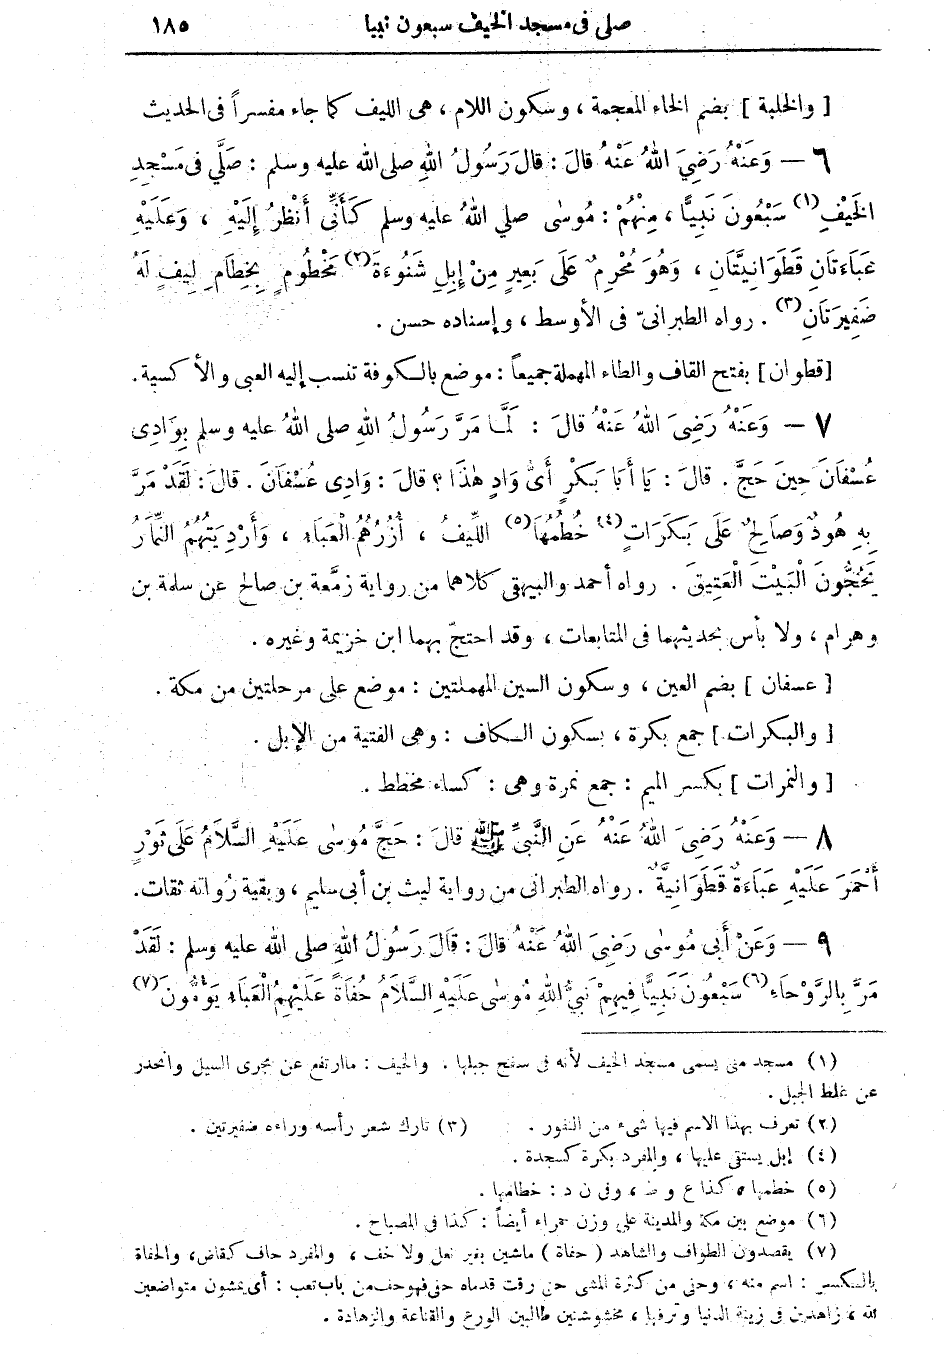 صلى فى مسجد الخيف سبعون نبيا ١٨٥
[ والخلبة ] بضم الخاء المعجمة ، وسكون اللام ، هى الليف كما جاء مفسراً فى الحديث
٦ — وَعَنْهُ رَضِيَ اللهُ عَنْهُ قالَ : قالَ رَسُولُ اللهِ صلى الله عليه وسلم : صَلَّى فى مَسْجِدِ
الخَيْفِ(١) سَبْعُونَ نَبِيًّا ، مِنْهُمْ : مُوسٰى صلى اللهُ عليه وسلم كَأَنِّى أَنْظُرُ إِلَيْهِ ، وَعَلَيْهِ
عَبَاءَتَانِ قَطَوَانِيَّتَانِ ، وَهُوَ مُحْرِمٌ عَلَى بَعِيرٍ مِنْ إِبِلِ شَنُوءَةَ(٢) مَخْطُومٍ بِخِطَامِ لِيفٍ لَهُ
ضَفِيرَتَانِ(٣) . رواه الطبرانىّ فى الأوسط ، وإسناده حسن .
[قطوان] بفتح القاف والطاء المهملة جميعاً : موضع بالكوفة تنسب إليه العبى والأكسية.
٧ — وَعَنْهُ رَضِىَ اللهُ عَنْهُ قالَ : لَمَّا مَرَّ رَسُولُ اللهِ صلى اللهُ عليه وسلم بِوَادِى
عُسْفَانَ حِينَ حَجَّ . قالَ : يَا أَبَا بَكْرٍ أَىُّ وَادٍ هٰذَا ؟ قالَ : وَادِى عُسْفَانَ . قالَ : لَقَدْ مَرَّ
بِهِ هُودٌ وَصَالِحٌ عَلَى بَكَرَاتٍ(٤) خُطُمُهَا(٥) اللِّيفُ ، أُزُرُهُمُ الْعَبَاءِ ، وَأَرْدِيَتُهُمُ النِّمَارُ
يَحُجُّونَ الْبَيْتَ الْعَتِيقَ . رواه أحمد والبيهقى كلاهما من رواية زمْعة بن صالح عن سلمة بن
وهرام ، ولا بأس بحديثهما فى المتابعات ، وقد احتجّ بهما ابن خزيمة وغيره .
[ عسفان ] بضم العين ، وسكون السين المهملتين : موضع على مرحلتين من مكة .
[ والبكرات ] جمع بكرة ، بسكون الكاف : وهى الفتية من الإبل .
[ والنمرات ] بكسر الميم : جمع نمرة وهى : كساء مخطط .
٨ — وَعَنْهُ رَضِىَ اللهُ عَنْهُ عَنِ النَّبِىِّ ﷺ قالَ : حَجَّ مُوسٰى عَلَيْهِ السَّلَامُ عَلَى ثَوْرٍ
أَحْمَرَ عَلَيْهِ عَبَاءَةٌ قَطَوَانِيَّةٌ . رواه الطبرانى من رواية ليث بن أبى سليم ، وبقية رُواته ثقات.
٩ — وَعَنْ أَبِى مُوسٰى رَضِىَ اللهُ عَنْهُ قالَ : قَالَ رَسُولُ اللهِ صلى الله عليه وسلم : لَقَدْ
مَرَّ بِالرَّوْحَاءِ(٦) سَبْعُونَ نَبِيًّا فِيهِمْ نَبِىُّ اللهِ مُوسٰى عَلَيْهِ السَّلَامُ حُفَاةً عَلَيْهِمُ الْعَبَاءِ يَؤُمُّونَ(٧)
(١) مسجد منى يسمى مسجد الخيف لأنه فى سفح جبلها . والخيف : ماارتفع عن مجرى السيل وانحدر
عن غلظ الجبل .
(٢) تعرف بهذا الاسم فيها شىء من النفور . (٣) تارك شعر رأسه وراءه ضفيرتين .
(٤) إبل يستقى عليها ، والمفرد بكرة كسجدة .
(٥) خطمها ، كذا ع و ط ، وفى ن د : خطامها .
(٦) موضع بين مكة والمدينة على وزن حمراء أيضاً : كذا فى المصباح .
(٧) يقصدون الطواف والشاهد ( حفاة ) ماشين بغير نعل ولا خف ، والمفرد حاف كقاض، والحفاة
بالكسر : اسم منه ، وحفى من كثرة المشى حتى رقت قدماه حفى فهو حف من باب تعب : أى يمشون متواضعين
لله ، زاهدين فى زينة الدنيا وترفها ، مخشوشنين طالبين الورع والقناعة والزهادة .